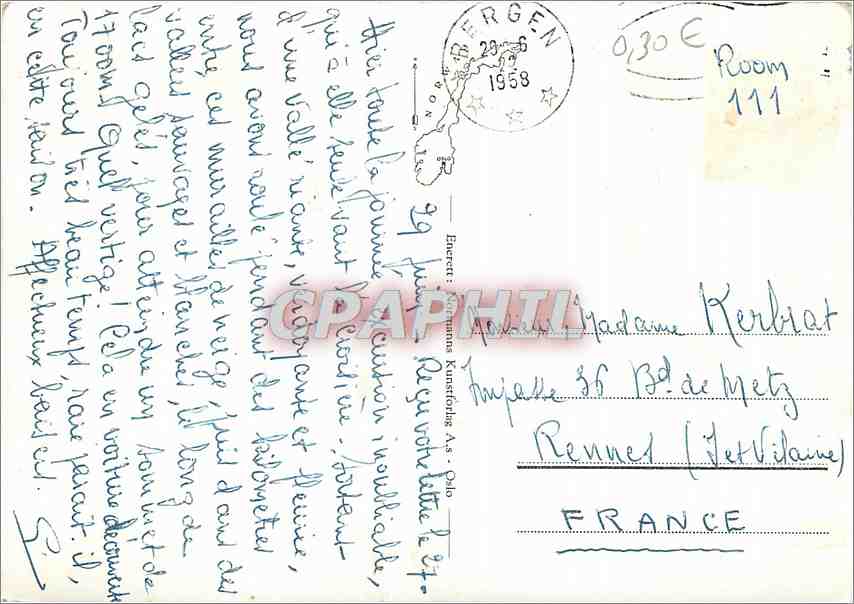 29 juin. Reçu votre lettre le 27.
Hier toute la journée, excursion inoubliable,
qui à elle seule vaut la croisière. Partant
d'une vallée riante, verdoyante et fleurie,
nous avons roulé pendant des kilomètres
entre ces murailles de neige, puis dans des
vallées sauvages et blanches, le long de
lacs gelés, pour atteindre un sommet de
1700m. Quel vertige! Cela en voiture découverte
Toujours très beau temps, rare paraît-il,
en cette saison. Affectueux baisers.
G.
BERGEN
29-6
1958
NORWAY
OSLO
0,30 €
Room
111
Enerett: Normanns Kunstforlag A.s - Oslo
CPAPHIL
Monsieur, Madame Kerbrat
Impasse 36 Bd. de Metz
Rennes (I et Vilaine)
FRANCE